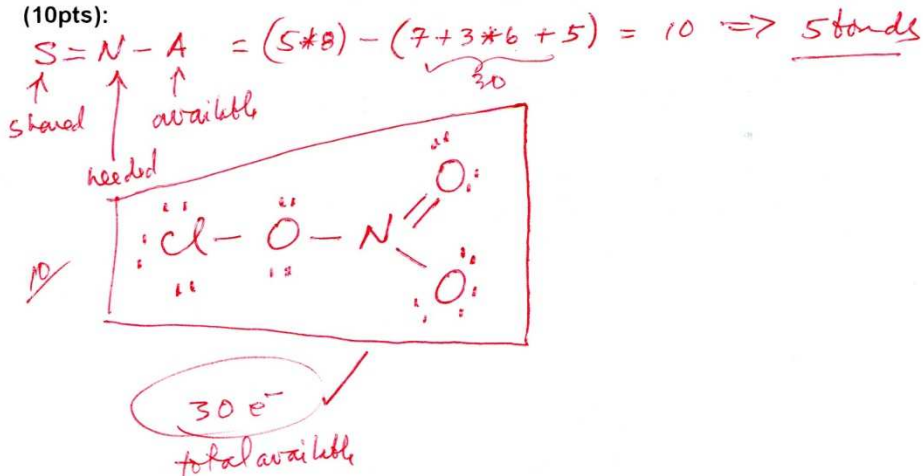 (10pts):
S = N - A = (5*8) - (7+3*6+5) = 10 => 5 bonds
30
shared
needed
available
:Cl - O - N
O:
:O:
10
30 e⁻ ✓
total available